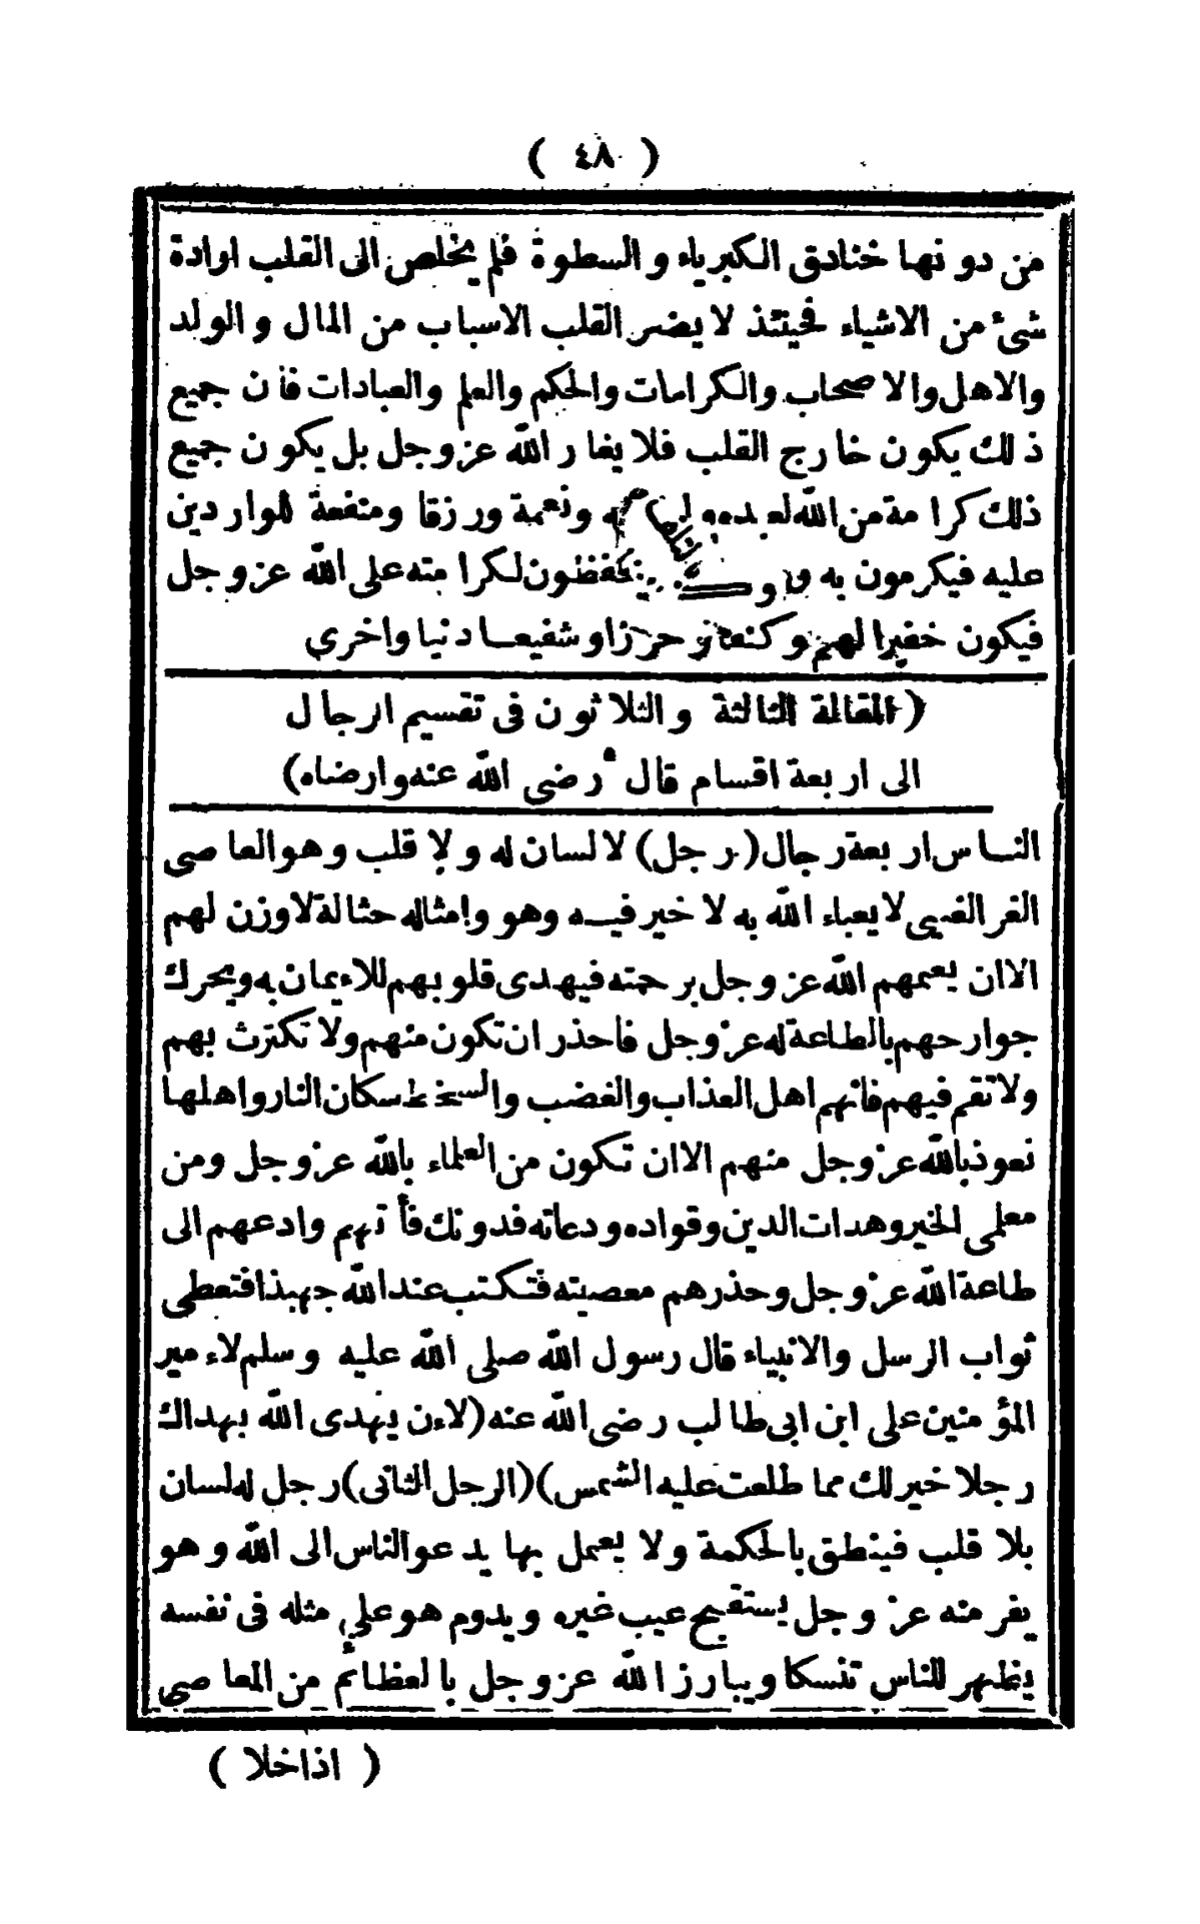 ( ٤٨ )
من دونها خنادق الكبرياء والسطوة فلم يخلص الى القلب ارادة
شئ من الاشياء فحينئذ لا يضر القلب الاسباب من المال والولد
والاهل والاصحاب والكرامات والحكم والعلم والعبادات فان جميع
ذلك يكون خارج القلب فلا يغار الله عز وجل بل يكون جميع
ذلك كرامة من الله لعبده ونعمة ورزقا ومنفعة للواردين
عليه فيكرمون به ويحفظون لكرامته على الله عز وجل
فيكون خفيرا لهم وكنفا وحرزا وشفيعا دنيا واخرى
(المقالة الثالثة والثلاثون فى تقسيم ارجال
الى اربعة اقسام قال رضى الله عنه وارضاه)
الناس اربعة رجال (رجل) لا لسان له ولا قلب وهو العاصى
الغر الغبى لا يعباء الله به لا خير فيه وهو وامثاله حثالة لا وزن لهم
الا ان يعمهم الله عز وجل برحمته فيهدى قلوبهم للاءيمان به ويحرك
جوارحهم بالطاعة له عز وجل فأحذر ان تكون منهم ولا تكترث بهم
ولا تقم فيهم فانهم اهل العذاب والغضب والسخط سكان النار واهلها
نعوذ بالله عز وجل منهم الا ان تكون من العلماء بالله عز وجل ومن
معلمى الخير وهدات الدين وقواده ودعاته فدونك فأتهم وادعهم الى
طاعة الله عز وجل وحذرهم معصيته فتكتب عند الله جهبذا فتعطى
ثواب الرسل والانبياء قال رسول الله صلى الله عليه وسلم لاءمير
المؤمنين على ابن ابى طالب رضى الله عنه (لاءن يهدى الله بهداك
رجلا خير لك مما طلعت عليه الشمس) (الرجل الثانى) رجل له لسان
بلا قلب فينطق بالحكمة ولا يعمل بها يدعو الناس الى الله وهو
يفر منه عز وجل يستقبح عيب غيره ويدوم هو على مثله فى نفسه
يظهر للناس تنسكا ويبارز الله عز وجل بالعظائم من المعاصى
( اذا خلا )